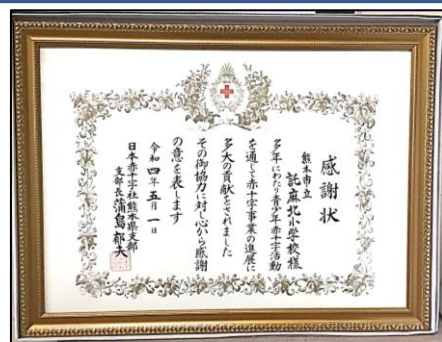 感謝状
熊本市立
託麻北小学校様
多年にわたり青少年赤十字活動
を通じて赤十字事業の進展に
多大の貢献をされました
その御協力に対し心から感謝
の意を表します
令和四年五月一日
日本赤十字社熊本県支部
支部長蒲島郁夫